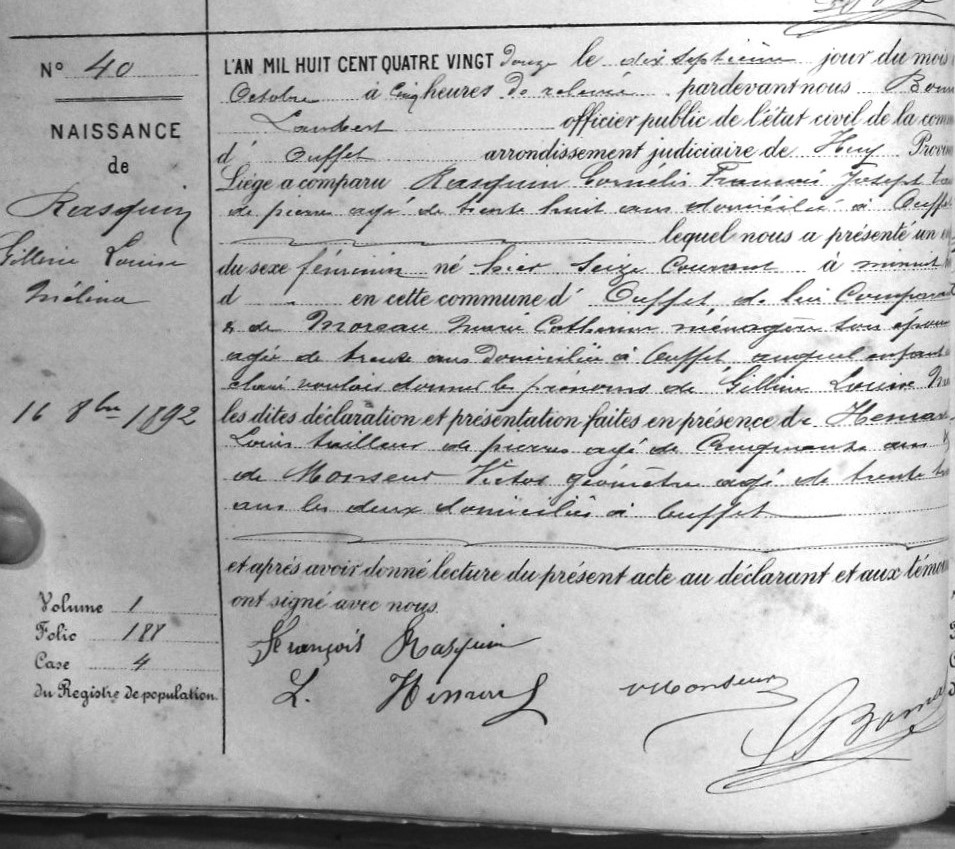 N° 40
NAISSANCE
de
Rasquin
Gilline Louise
Mélina
16 8bre 1892
Volume 1
Folio 188
Case 4
du Registre de population.
L'AN MIL HUIT CENT QUATRE VINGT douze le dix septième jour du mois
Octobre à cinq heures de relevée pardevant nous
Lambert officier public de l'état civil de la com
d' Ouffet arrondissement judiciaire de Huy Provin
Liége a comparu Rasquin Cornélis François Joseph
de pierre agé de trente huit ans domicilié à Ouffet
lequel nous a présenté un en
du sexe féminin né hier seize courant à minuit
d en cette commune d' Ouffet, de lui Comparant
& de Moreau Marie Catherine ménagère son épouse
agée de trente ans domiciliée à Ouffet auquel enfant
déclaré vouloir donner les prénoms de Gilline Louise
les dites déclaration et présentation faites en présence de
Louis tailleur de pierres agé de Cinquante ans &
de Monseur Victor géomètre agé de trente
ans les deux domiciliés à Ouffet
et aprés avoir donné lecture du présent acte au déclarant et aux témoi
ont signé avec nous.
François Rasquin
L.
VMonseur